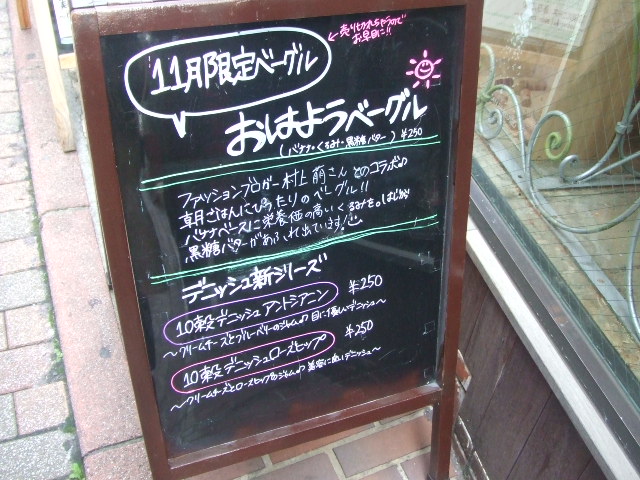 11月限定ベーグル
←売り切れちゃうので
お早目に!!
おはようベーグル
(バナナ・くるみ・黒糖バター) ¥250
ファッションブロガー村上 萌さんとのコラボ♪
朝ごはんにぴったりのベーグル!!
バナナベースに栄養価の高いくるみを。はじめ
黒糖バターがあふれ出ています!
デニッシュ新シリーズ
10穀デニッシュアントシアニン ¥250
〜クリームチーズとブルーベリーのジャム♪ 目に優しいデニッシュ〜
10穀デニッシュローズヒップ ¥250
〜クリームチーズとローズヒップのジャム♪ 美容に良いデニッシュ〜